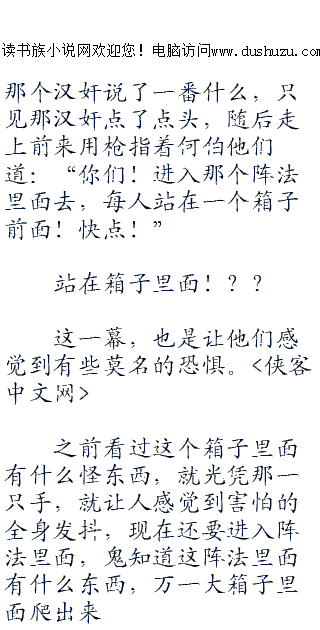 读书族小说网欢迎您！电脑访问www.dushuzu.com
那个汉奸说了一番什么，只
见那汉奸点了点头，随后走
上前来用枪指着何伯他们
道：“你们！进入那个阵法
里面去，每人站在一个箱子
前面！快点！”
站在箱子里面！？？
这一幕，也是让他们感
觉到有些莫名的恐惧。<侠客
中文网>
之前看过这个箱子里面
有什么怪东西，就光凭那一
只手，就让人感觉到害怕的
全身发抖，现在还要进入阵
法里面，鬼知道这阵法里面
有什么东西，万一大箱子里
面爬出来